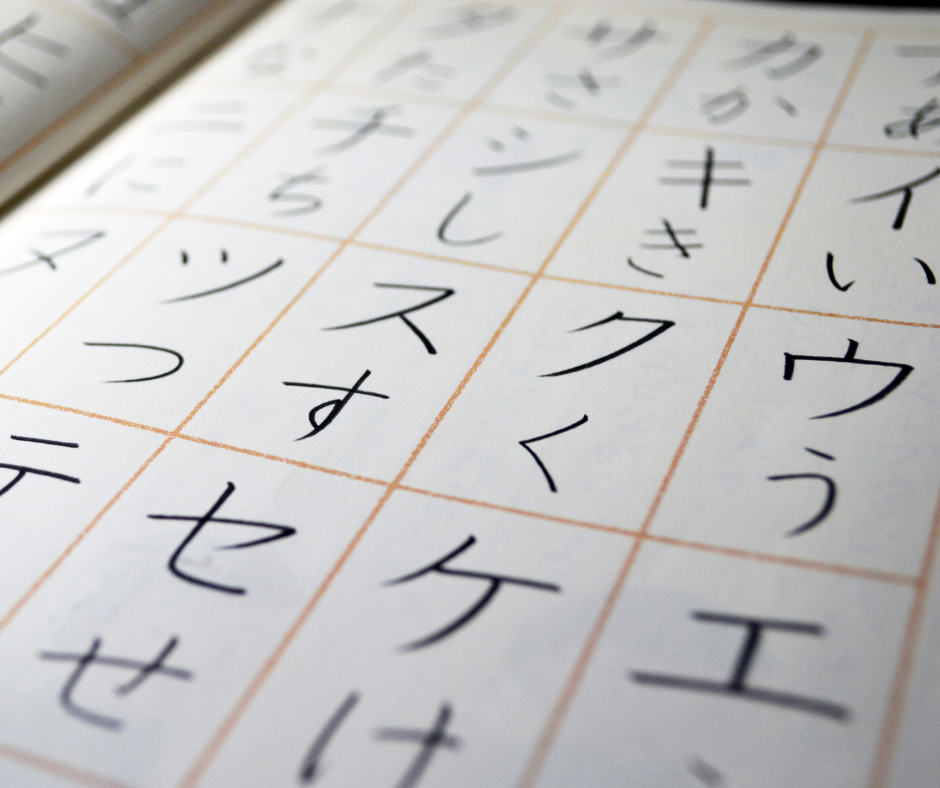 ア
あ
イ
い
ウ
う
エ
カ
か
キ
き
ク
く
ケ
け
サ
さ
シ
し
ス
す
セ
せ
タ
た
チ
ち
ツ
つ
テ
な
ニ
に
ヌ